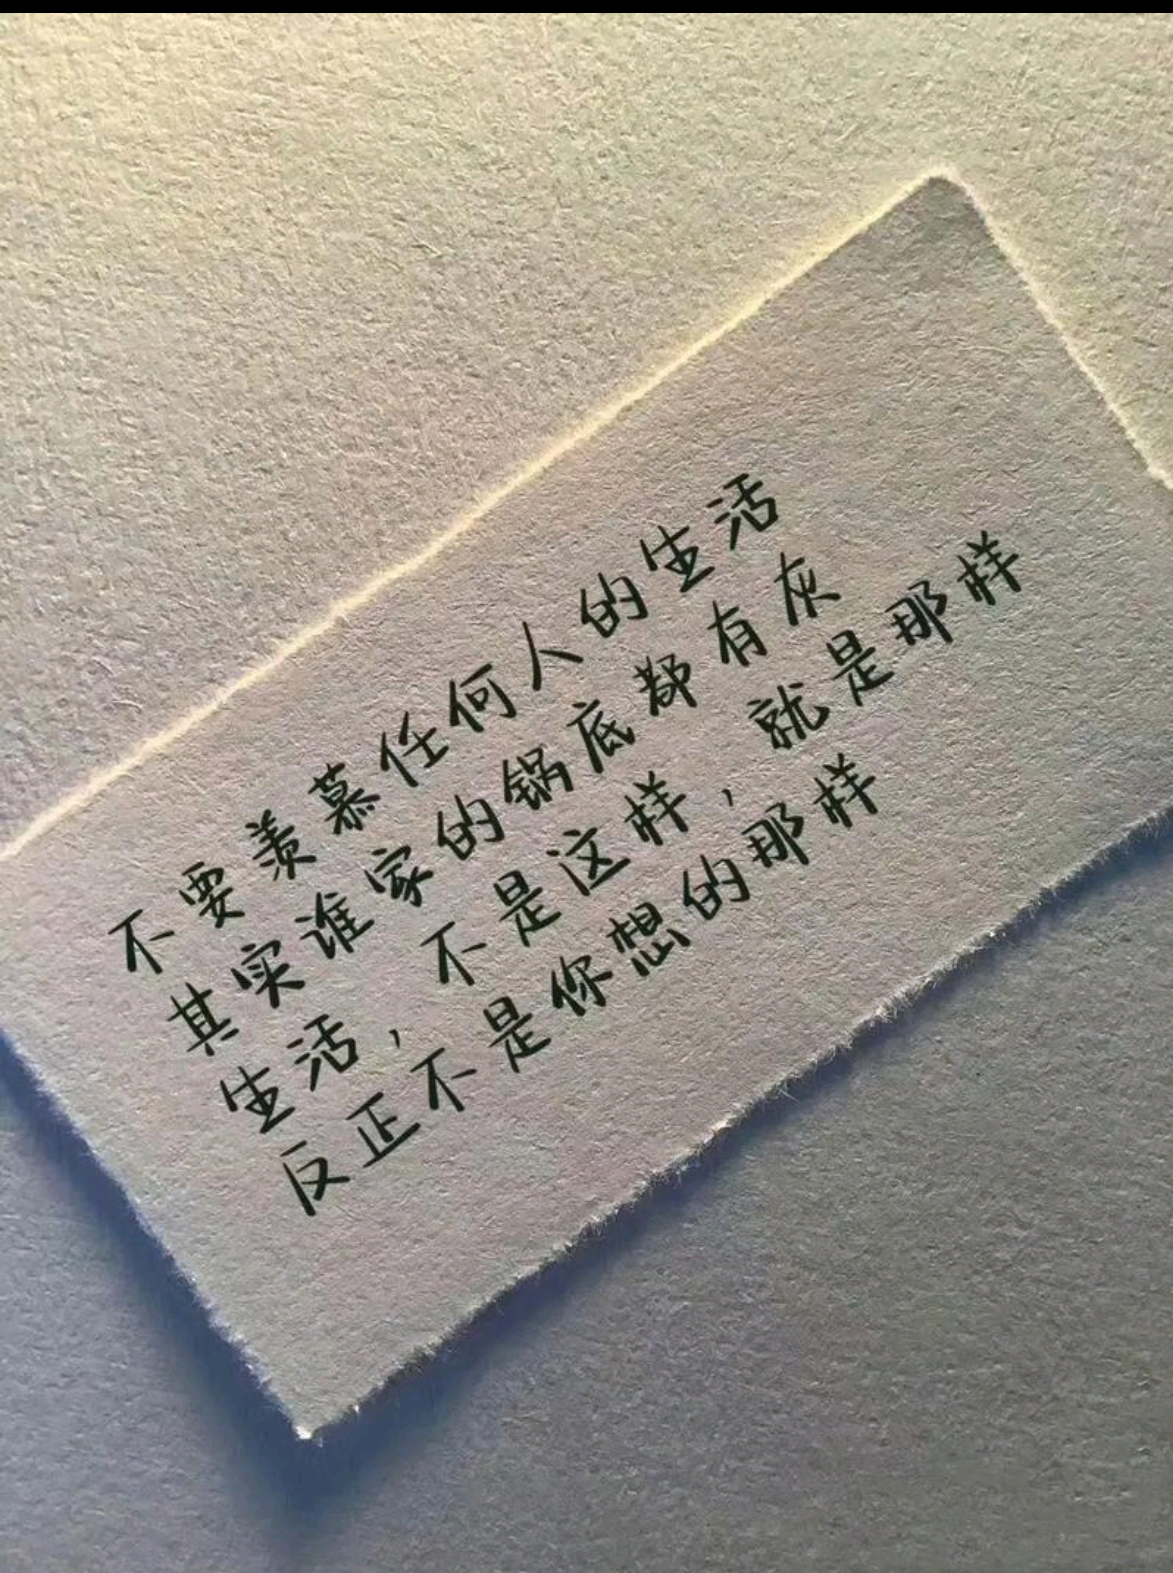 不要羡慕任何人的生活
其实谁家的锅底都有灰
生活，不是这样，就是那样
反正不是你想的那样